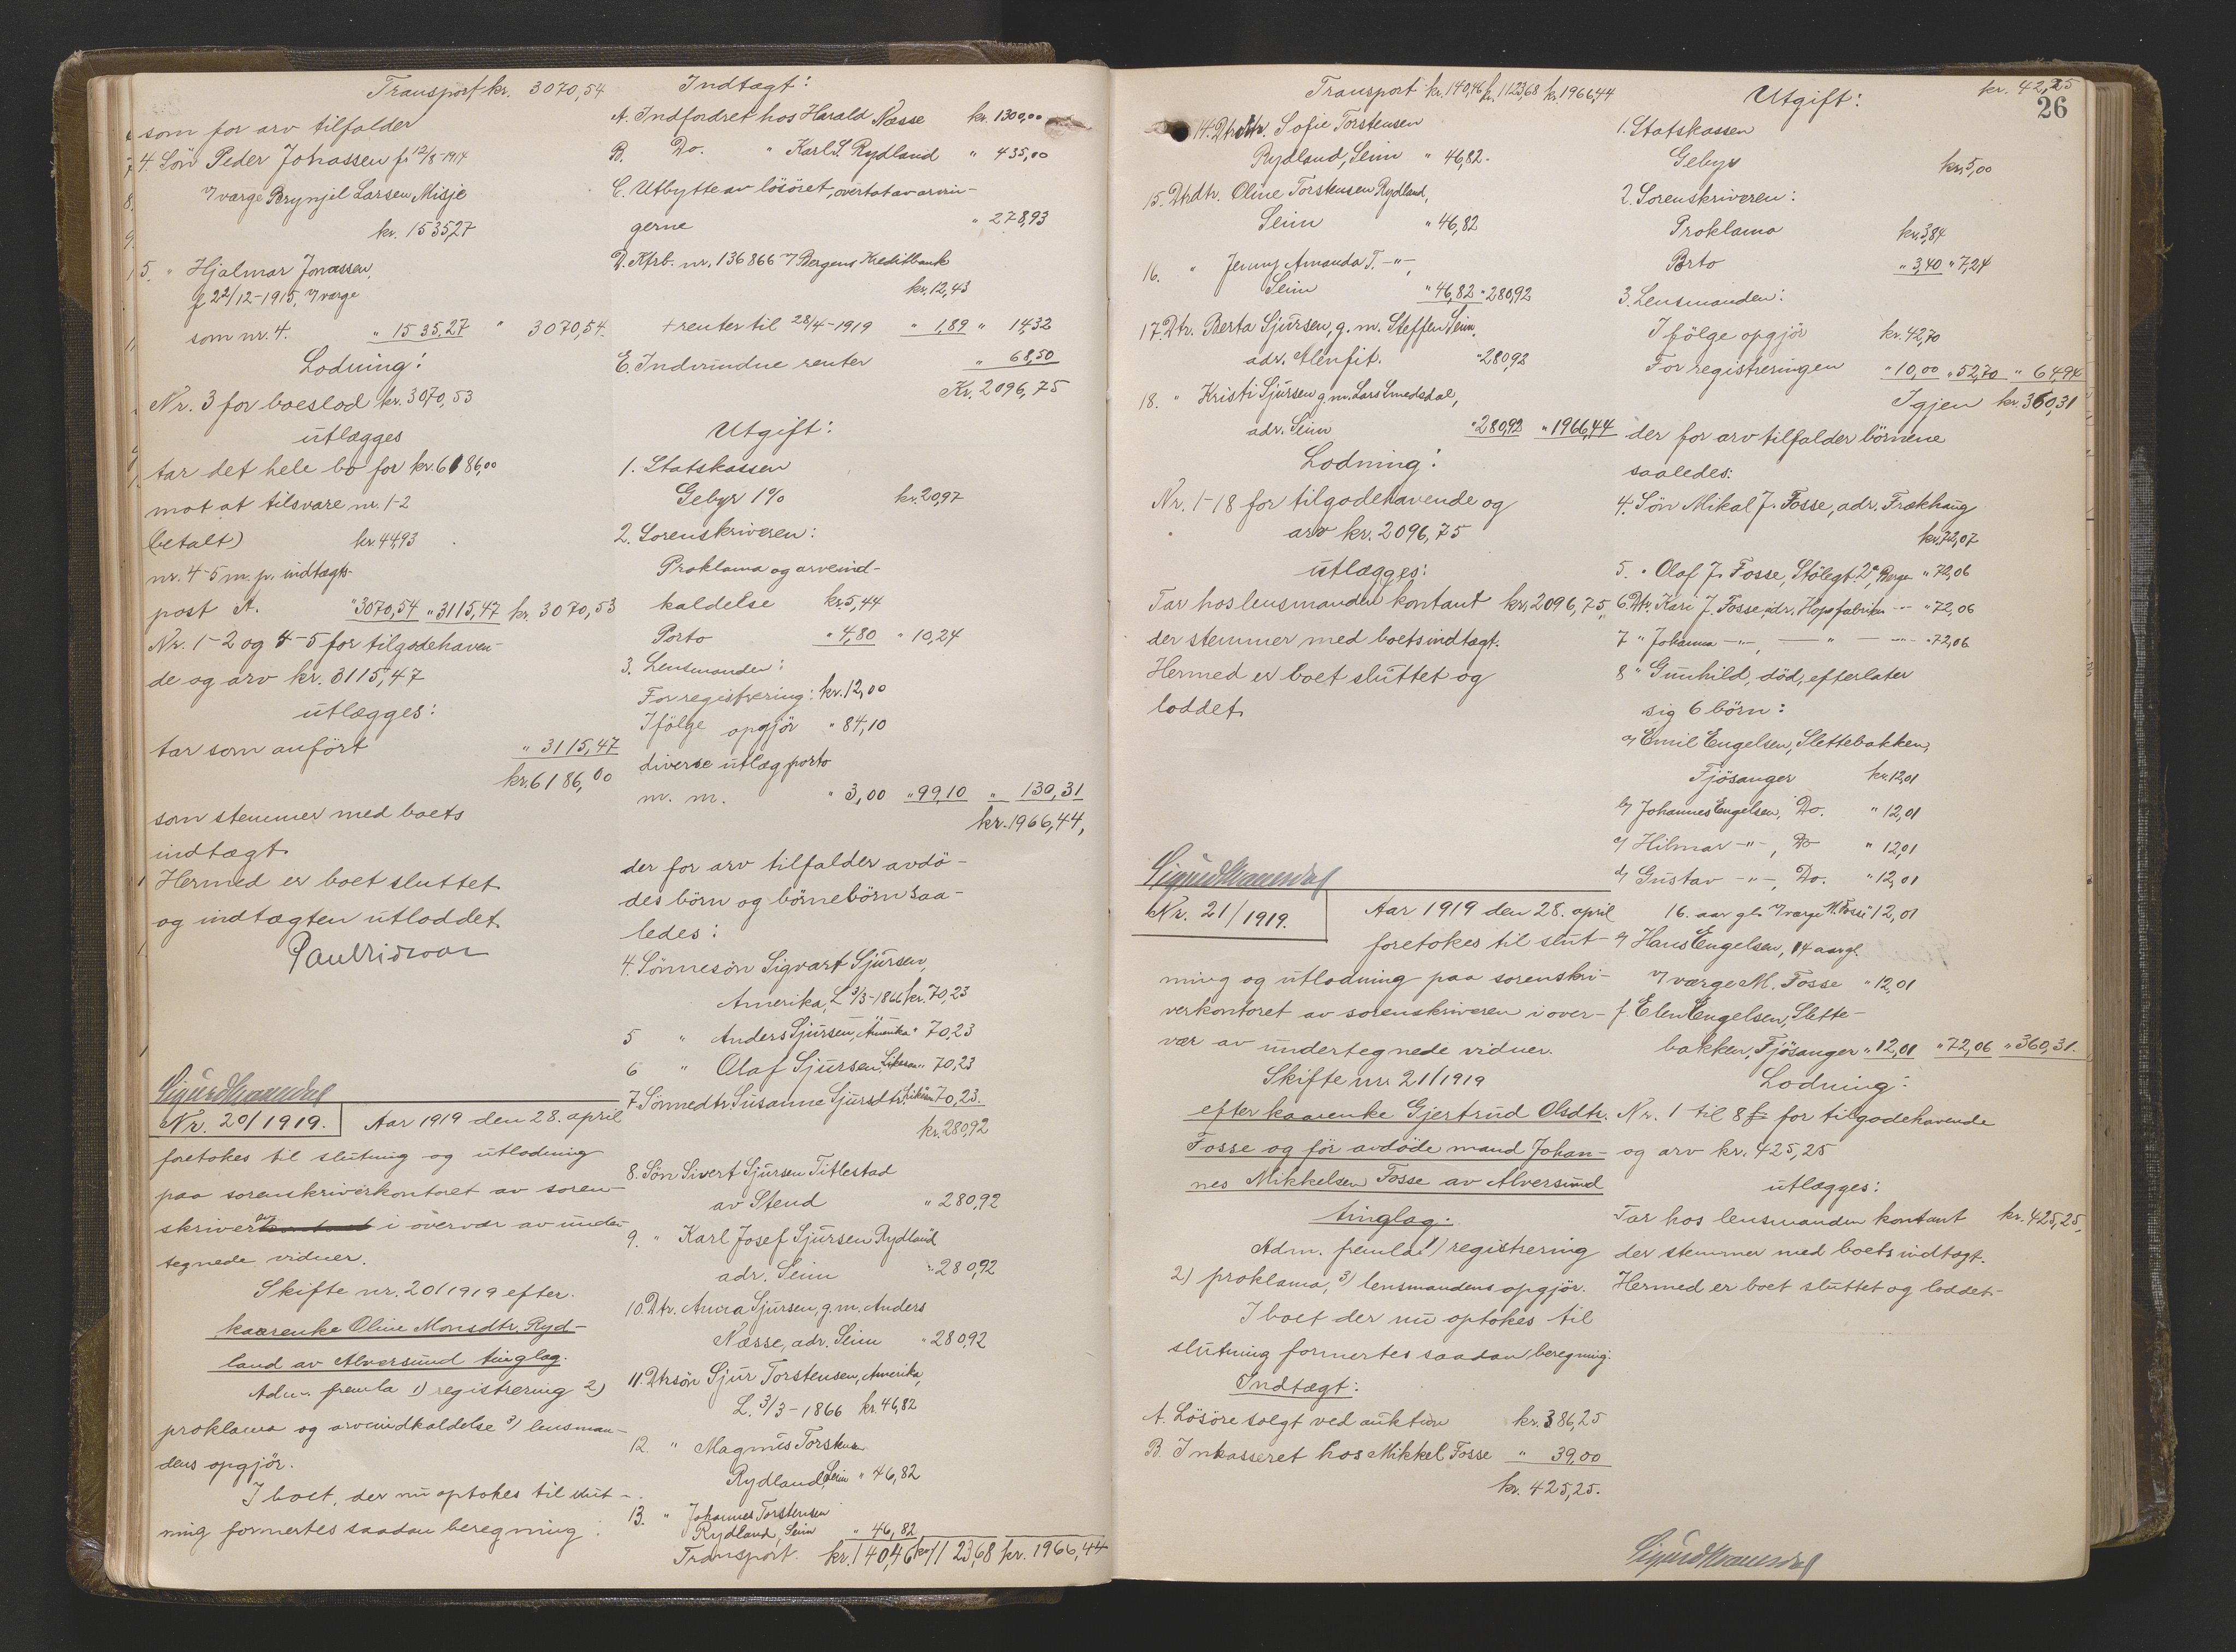 Transport kr. 3070,54
som for arv tilfalder
4. Sön Peder Johassen f. 12/8-1914
v/ værge Brynjel Larsen Misje
kr. 1535,27
5. " Hjalmar Jonassen,
f. 22/12-1915, v/ værge
som nr. 4. " 1535,27 " 3070,54.
Lodning:
Nr. 3 for boeslod kr. 3070,53
utlægges
tar det hele bo for kr. 6186,00
mot at tilsvare nr. 1-2
(betalt) kr. 44,93
nr. 4-5 m. p. indtægts-
post A. " 3070,54 " 3115,47 kr. 3070,53
Nr. 1-2 og 4-5 for tilgodehaven-
de og arv kr. 3115,47
utlægges:
tar som anfört " 3115,47
kr. 6186,00
som stemmer med boets
indtægt.
Hermed er boet sluttet
og indtægten utloddet.
Nr. 20/1919. Aar 1919 den 28. april
foretokes til slutning og utlodning
paa sorenskriverkontoret av soren-
skriveren i overvær av under-
tegnede vidner.
Skifte nr. 20/1919 efter
kaarenke Oline Monsdtr. Ryd-
land av Alversund tinglag.
Adm. fremla 1) registrering 2)
proklama og arveindkaldelse 3) lensman-
dens opgjör.
I boet, der nu optokes til slut-
ning formertes saadan beregning:
Indtægt:
A. Indfordret hos Harald Næsse kr. 1300,00
B. Do. " Karl S. Rydland " 435,00
C. Utbytte av lösöret, overtat av arvin-
gerne " 278,93
D. Kfrb. nr. 136866 v/ Bergens Kreditbank
kr. 12,43
+ renter til 28/4-1919 " 1,89 " 14,32
E. Indvundne renter " 68,50
Kr. 2096,75
Utgift:
1. Statskassen
Gebyr 1% kr. 20,97
2. Sorenskriveren:
Proklama og arveind-
kaldelse kr. 5,44
Porto " 4,80 " 10,24
3. Lensmanden:
For registrering: kr. 12,00
Ifölge opgjör " 84,10
diverse utlæg porto
m. m. " 3,00 " 99,10 " 130,31
kr. 1966,44,
der for arv tilfalder avdö-
des börn og börnebörn saa-
ledes:
4. Sönnesön Sigvart Sjursen,
Amerika, L. 3/3-1866 kr. 70,23
5 " Anders Sjursen, Amerika " 70,23
6 " Olaf Sjursen, " 70,23
7. Sönnedtr Susanne Sjursdtr. 70,23.
kr. 280,92
8. Sön Sivert Sjursen Titlestad
av Stend " 280,92
9. " Karl Josef Sjursen Rydland
adr. Seim " 280,92
10. Dtr. Anna Sjursen, g. m. Anders
Næsse, adr. Seim " 280,92
11. Dtrsön Sjur Torstensen, Amerika,
L. 3/3-1866 kr. 46,82
12. " Magnus Torstens.
Rydland, Seim " 46,82
13. " Johannes Torstensen
Rydland, Seim " 46,82
Transport. kr. 140,46 kr. 1123,68 kr. 1966,44
Transport kr. 140,46 kr. 1123,68 kr. 1966,44
14. Dtrdtr. Sofie Torstensen
Rydland, Seim " 46,82.
15. Dtrdtr. Oline Torstensen Rydland,
Seim " 46,82
16. " Jenny Amanda T. -"-,
Seim " 46,82 " 280,92
17. Dtr. Berta Sjursen, g. m. Steffen Seim,
adr. Alenfit. " 280,92
18. " Kristi Sjursen g. m. Lars Smedsdal,
adr. Seim " 280,92 " 1966,44
Lodning:
Nr. 1-18 for tilgodehavende og
arv kr. 2096,75
utlægges:
Tar hos lensmanden kontant kr. 2096,75,
der stemmer med boets indtægt.
Hermed er boet sluttet og
loddet.
Nr. 21/1919. Aar 1919 den 28. april
foretokes til slut-
ning og utlodning paa sorenskri-
verkontoret av sorenskriveren i over-
vær av undertegnede vidner.
Skifte nr. 21/1919
efter kaarenke Gjertrud Olsdtr.
Fosse og för avdöde mand Johan-
nes Mikkelsen Fosse av Alversund
tinglag.
Adm. fremla 1) registrering
2) proklama, 3) lensmandens opgjör.
I boet der nu optokes til
slutning formertes saadan beregning:
Indtægt:
A. Lösöre solgt ved auktion kr. 386,25
B. Inkasseret hos Mikkel Fosse " 39,00
kr. 425,25.
kr. 42,25
26
Utgift:
1. Statskassen
Gebyr kr. 5,00
2. Sorenskriveren:
Proklama kr. 3,84
Porto " 3,40 " 7,24
3. Lensmanden:
Ifölge opgjör kr. 42,70
For registreringen " 10,00 " 52,70 " 64,94
Igjen kr. 360,31
der for arv tilfalder börnene
saaledes:
4. Sön Mikal J. Fosse, adr. Frækhaug
kr. 72,07
5. " Olaf J. Fosse, Stölegt. 2a, Bergen " 72,06
6. Dtr. Kari J. Fosse, adr. Hopsfabriken -"- " 72,06
7 " Johanna -"-, — " — -"- " 72,06
8 " Gunhild, död, efterlater
sig 6 börn:
a) Emil Engelsen, Slettebakken,
Fjösanger kr. 12,01
b) Johannes Engelsen, Do. " 12,01
c) Hilmar -"-, Do " 12,01
d) Gustav -"-, Do. " 12,01
16. aar gl. v/ værge M. Fosse 12,01
e) Hans Engelsen, 14 aar gl.
v/ værge M. Fosse " 12,01
f. Elen Engelsen, Slette-
bakken, Fjösanger " 12,01 " 72,06 " 360,31.
Lodning:
Nr. 1 til 8 f for tilgodehavende
og arv kr. 425,25
utlægges:
Tar hos lensmanden kontant kr. 425,25,
der stemmer med boets indtægt.
Hermed er boet sluttet og loddet.